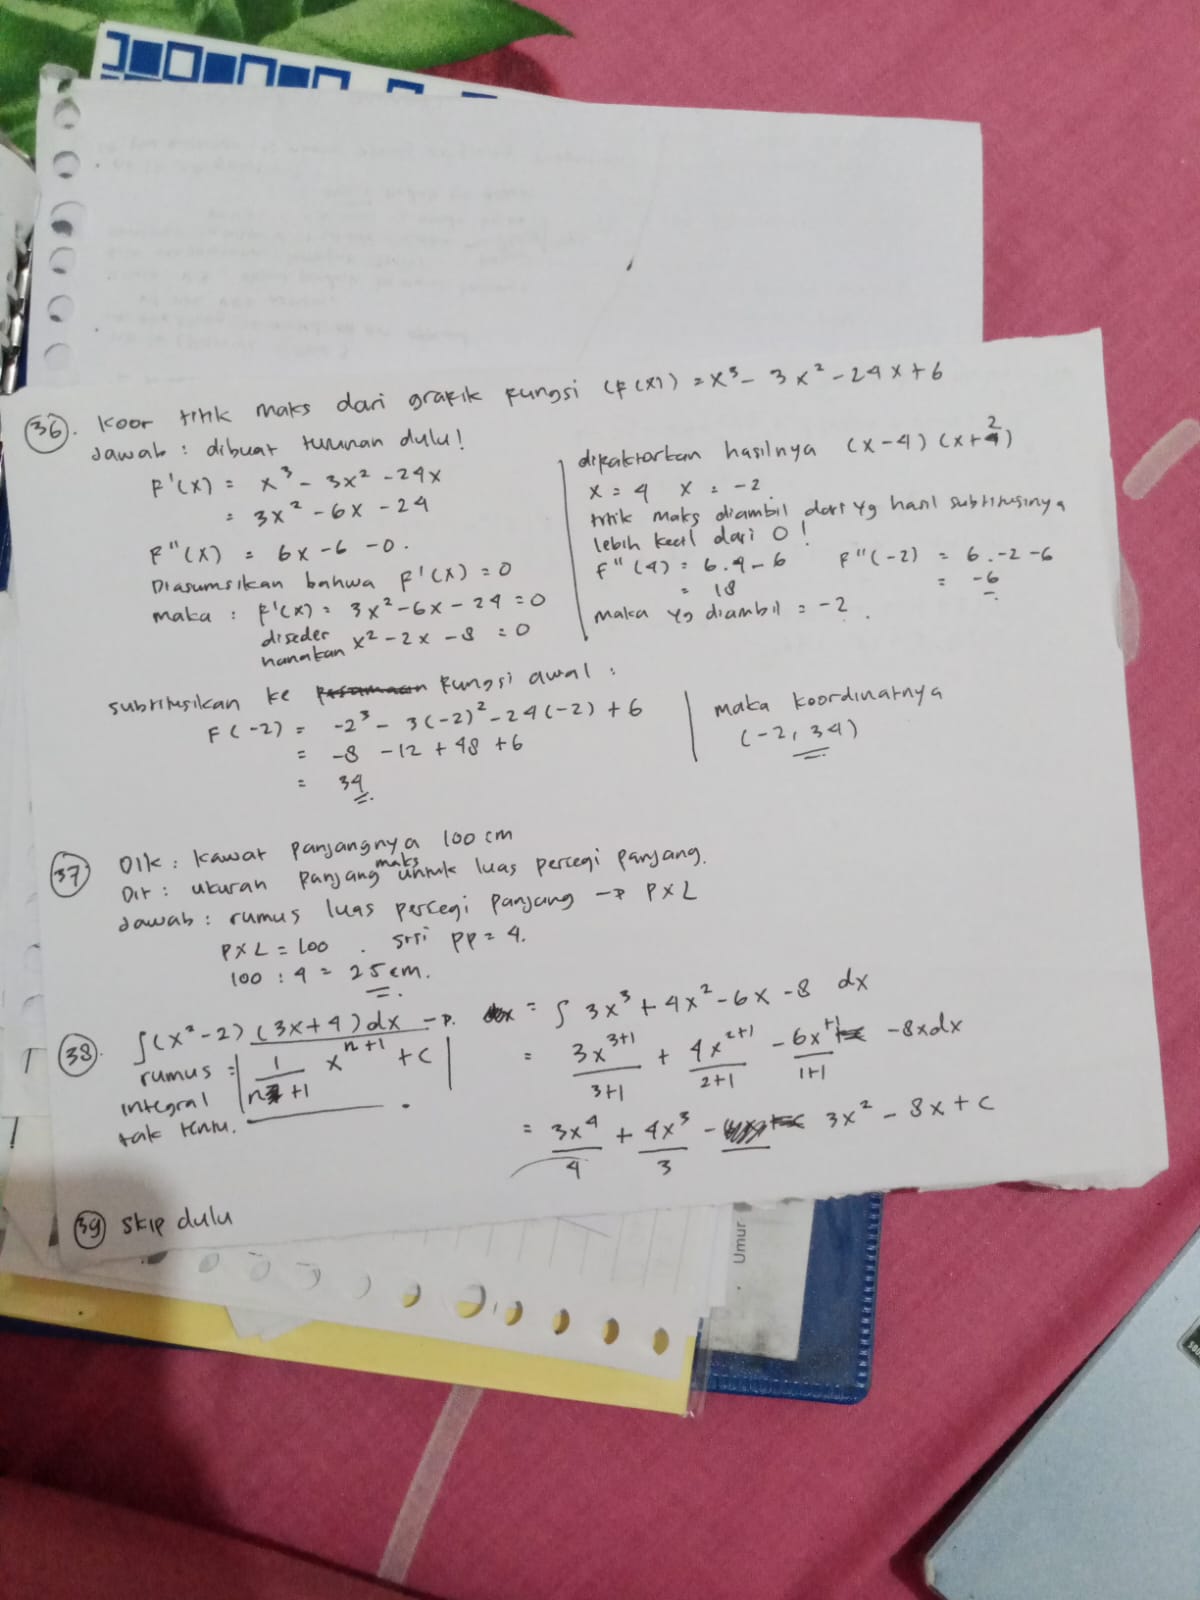 36. Koor titik maks dari grafik fungsi (F(x)) = x³ - 3x² - 24x + 6
Jawab : dibuat turunan dulu!
F'(x) = x³ - 3x² - 24x
= 3x² - 6x - 24
F''(x) = 6x - 6 - 0.
Diasumsikan bahwa F'(x) = 0
maka : F'(x) = 3x² - 6x - 24 = 0
diseder
hanakan x² - 2x - 8 = 0
difaktorkan hasilnya (x-4) (x+2)
x = 4 x = -2
titik maks diambil dari yg hasil subtitusinya
lebih kecil dari 0!
F''(4) = 6.4 - 6 F''(-2) = 6.-2 -6
= 18 = -6
maka yg diambil = -2.
subtitusikan ke fungsi awal :
F(-2) = -2³ - 3(-2)² - 24(-2) + 6
= -8 - 12 + 48 + 6
= 34
maka koordinatnya
(-2, 34)
37. Dik : kawat panjangnya 100 cm
Dit : ukuran panjang maks untuk luas persegi panjang.
Jawab : rumus luas persegi panjang → P x L
P x L = 100 . sisi pp = 4.
100 : 4 = 25 cm.
38. ∫(x² - 2) (3x + 4) dx → = ∫ 3x³ + 4x² - 6x - 8 dx
rumus = 1/n+1 x^n+1 + C
integral
tak tentu.
= 3x³⁺¹/3+1 + 4x²⁺¹/2+1 - 6x⁺¹/1+1 - 8xdx
= 3x⁴/4 + 4x³/3 - 3x² - 8x + C
39 skip dulu
Umur